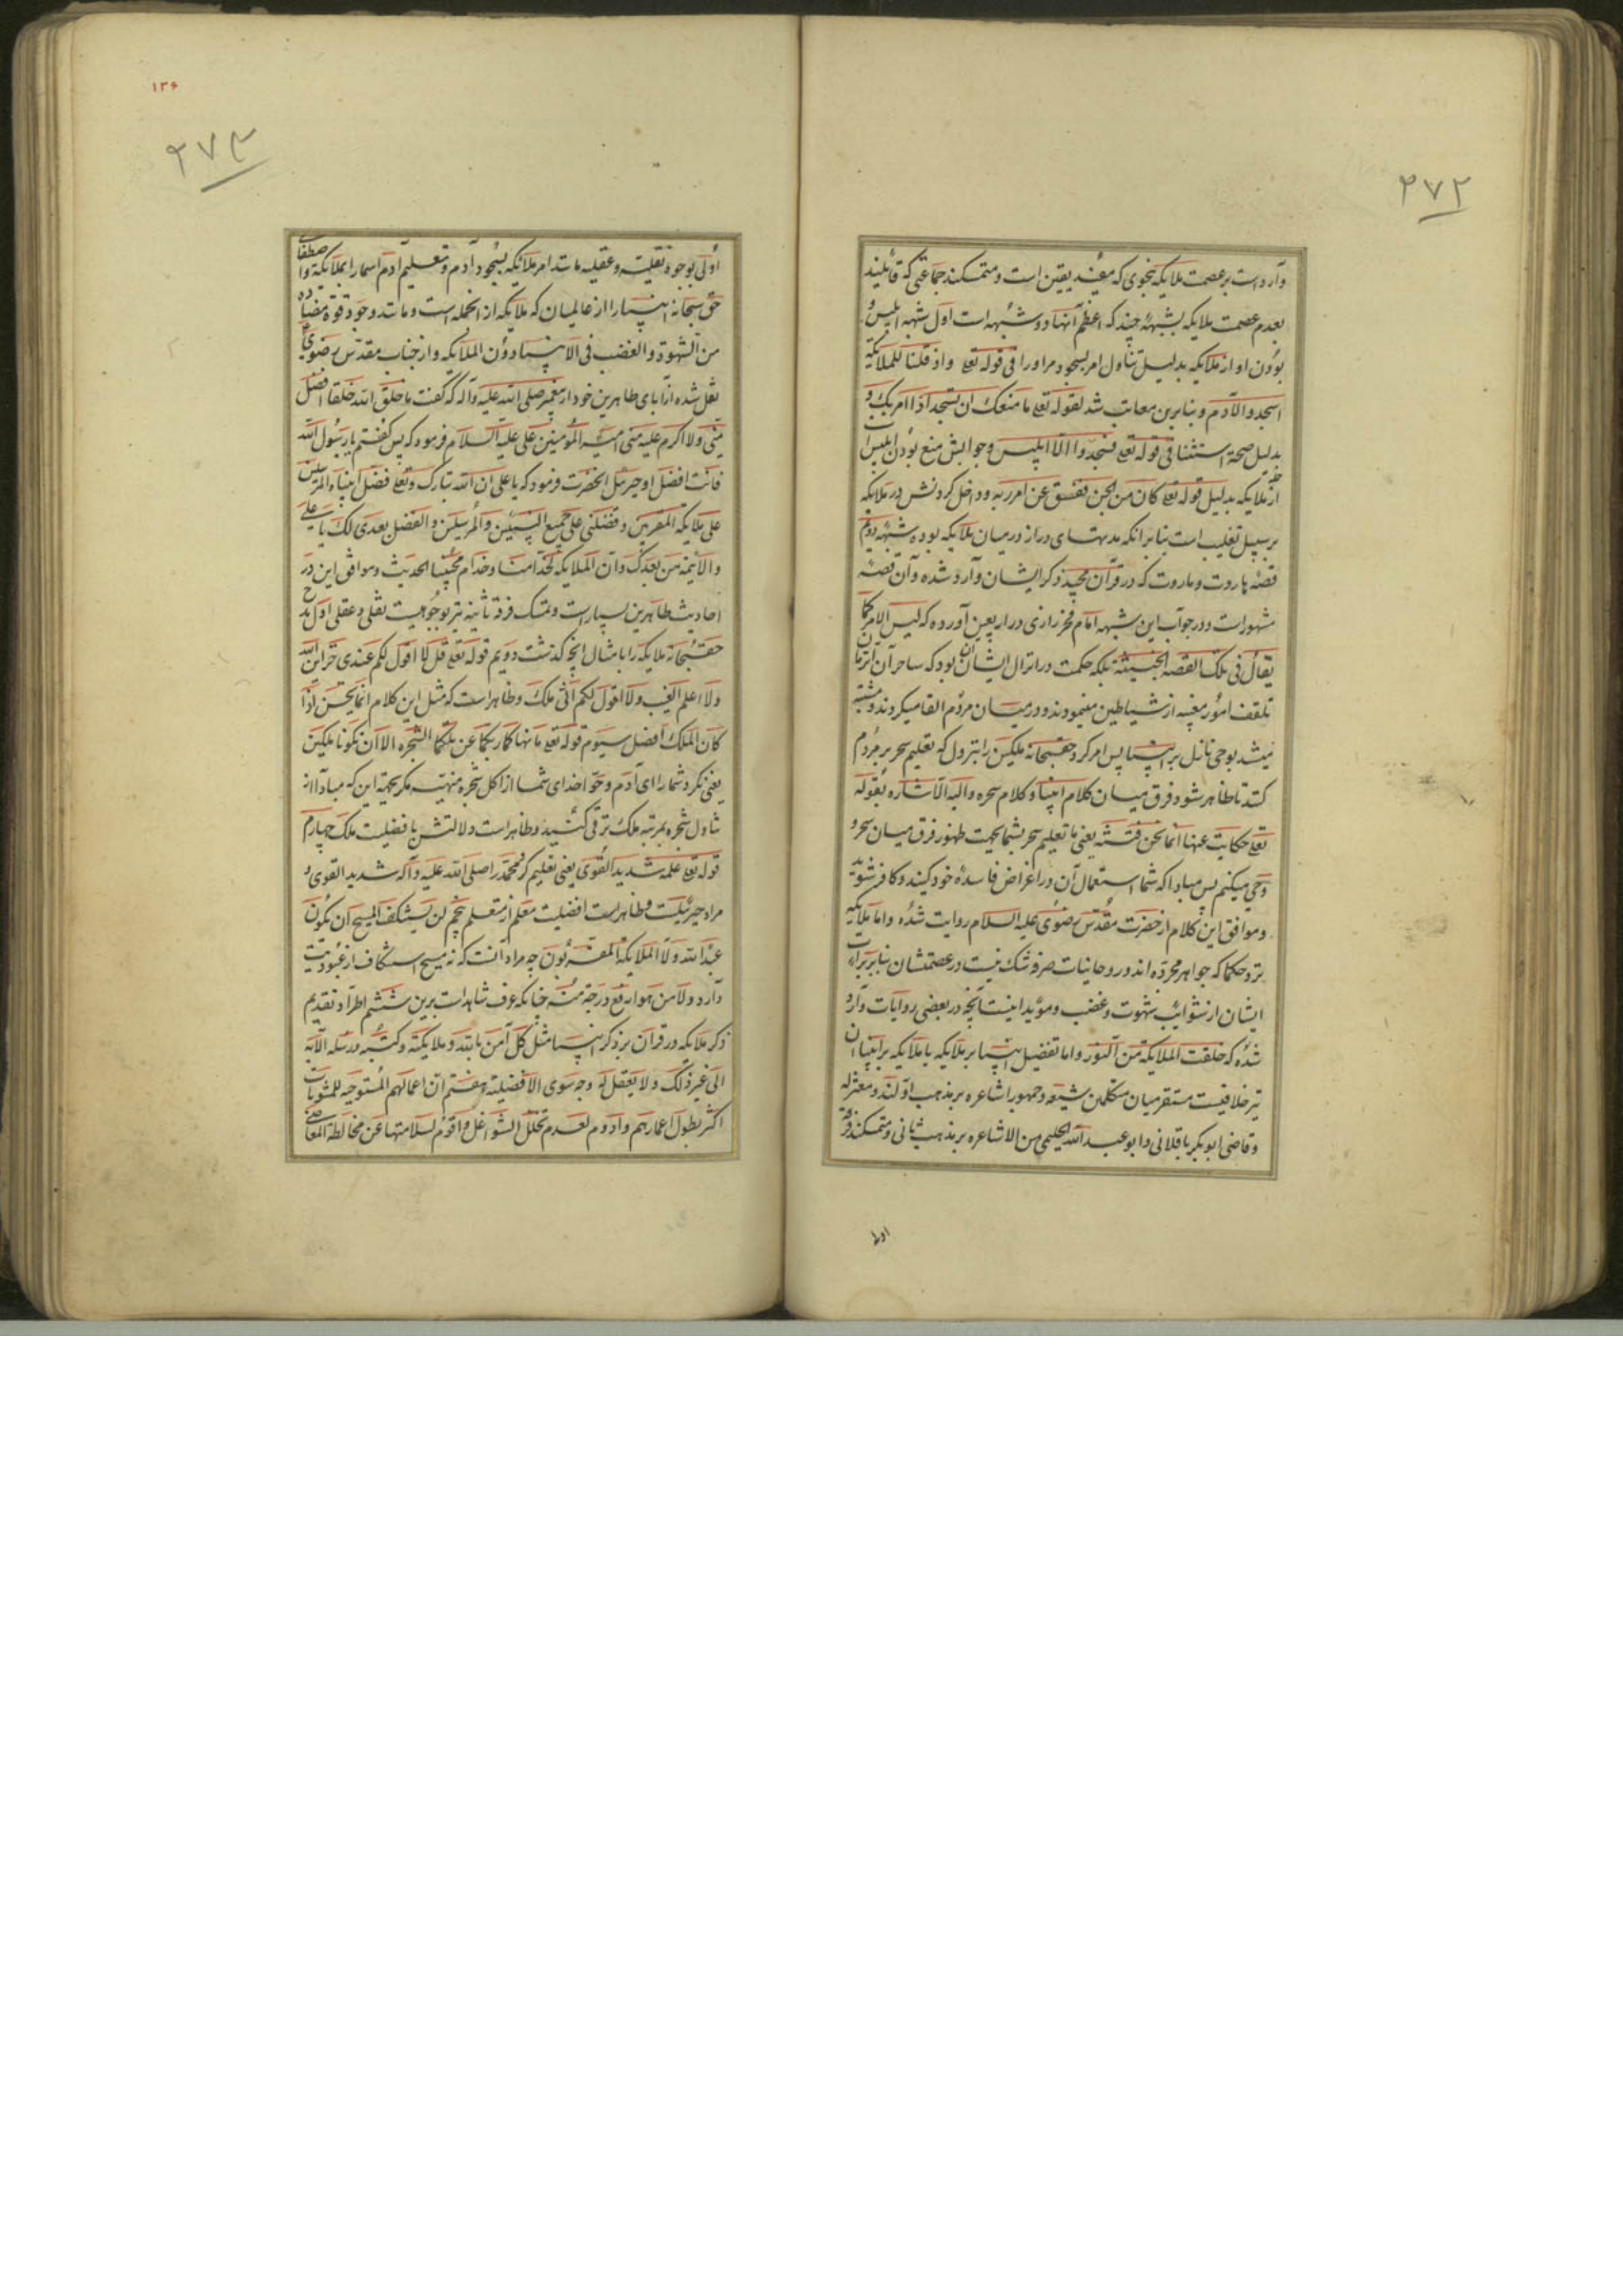 ۲۷۲
وارد است بر عصمت ملایکه بنحوی که مفید یقین است و متمسکند جماعتی که قائلند
بعدم عصمت ملایکه بشبههٔ چند که اعظم آنها دو شبهه است اول شبهه ابلیس و
بودن او از ملایکه بدلیل تناول امر بسجود مر او را فی قوله تعالی واذ قلنا للملایکة
اسجدوا لآدم و بنابرین معاتب شد لقوله تعالی ما منعک ان تسجد اذ امرتک و
بدلیل صحة استثنا فی قوله تعالی فسجدوا الا ابلیس وجوابش منع بودن ابلیس است
از ملایکه بدلیل قوله تعالی کان من الجن ففسق عن امر ربه و داخل کردنش در ملایکه
بر سبیل تغلیب است بنابر انکه مدتهای دراز در میان ملایکه بوده شبهه دوم
قصهٔ هاروت و ماروت که در قرآن مجید ذکر ایشان وارد شده و آن قصه
مشهور است و در جواب این شبهه امام فخر رازی در اربعین آورده که لیس الامر کما
یقال فی تلک القصه الخبیثة بلکه حکمت در انزال ایشان آن بود که ساحران آن زمان
تلقف امور مغیبه از شیاطین مینمودند و در میان مردم القا میکردند و مشتبه
میشد بوحی نازل بر انبیا پس امر کرد حقسبحانه ملکین را بنزول که تعلیم سحر بر مردم
کنند تا ظاهر شود فرق میان کلام انبیا و کلام سحره والیه الاشاره بقوله
تعالی حکایت عنها انما نحن فتنه یعنی ما تعلیم سحر بشما بجهت ظهور فرق میان سحر و
وحی میکنیم پس مبادا که شما استعمال آن در اغراض فاسدهٔ خود کنید و کافر شوید
و موافق این کلام از حضرت مقدس رضوی علیه السلام روایت شده واما ملایکه
نزد حکما که جواهر مجرده اند و روحانیات صرفه شک نیست در عصمتشان بنابر برائت
ایشان از شوائب شهوت و غضب و مؤید اینست آنچه در بعضی روایات وارد
شده که خلقت الملایکة من النور واما تفضیل انبیا بر ملایکه یا ملایکه بر انبیا آن
نیز خلافیست مستقر میان متکلمین شیعه و جمهور اشاعره بر مذهب اولند و معتزله
و قاضی ابو بکر باقلانی و ابو عبد الله الحلیمی من الاشاعره بر مذهب ثانی و متمسکند فرقهٔ
اولی
۱۳۶
۲۷۳
اولی بوجوه نقلیه و عقلیه مانند امر ملائکه بسجود آدم و تعلیم آدم اسما را بملایکة و اصطفای
حق سبحانه انبیا را از عالمیان که ملایکه از انجمله است و مانند وجود قوة مضاده
من الشهوة والغضب فی الانبیا دون الملایکه و از جناب مقدس رضوی
نقل شده از آبای طاهرین خود از پیغمبر صلی الله علیه وآله که گفت ما خلق الله خلقا افضل
منی ولا اکرم علیه منی امیر المؤمنین علی علیه السلام فرمود که پس گفتم یا رسول الله
فانت افضل او جبرئیل انحضرت فرمود که یا علی ان الله تبارک وتعالی فضل انبیاه المرسلین
علی ملایکه المقربین و فضلنی علی جمیع النبیین والمرسلین والفضل بعدی لک یا علی
والائمة من بعدک وان الملایکة لخدامنا وخدام محبینا الحدیث و موافق این در
احادیث طاهرین بسیار است و متمسک فرقهٔ ثانیه نیز بوجوهیست نقلی و عقلی اول مدح
حقسبحانه ملایکه را بامثال آنچه گذشت دویم قوله تعالی قل لا اقول لکم عندی خزاین الله
ولا اعلم الغیب ولا اقول لکم انی ملک و ظاهر است که مثل این کلام انما یحسن اذا
کان الملک افضل سیوم قوله تعالی ما نهاکما ربکما عن تلکما الشجره الا ان تکونا ملکین
یعنی نکرد شما را ای آدم و حوا خدای شما از اکل شجره منهیه مگر بجهة این که مبادا از
تناول شجره بمرتبه ملک ترقی کنید و ظاهر است دلالتش بافضلیت ملک چهارم
قوله تعالی علمه شدید القوی یعنی تعلیم کرد محمد را صلی الله علیه وآله شدید القوی و
مراد جبرئیلست و ظاهر است افضلیت معلم از متعلم پنجم لن یستنکف المسیح ان یکون
عبدا لله ولا الملایکة المقربون چه مراد آنست که نه مسیح استنکاف از عبودیت
دارد ولا من هو ارفع درجة منه چنانکه عرف شاهد است برین ششم اطراد تقدیم
ذکر ملایکه در قرآن بر ذکر انبیا مثل کل آمن بالله وملایکته وکتبه ورسله الآیه
الی غیر ذلک ولا یعقل له وجه سوی الافضلیة هفتم ان اعمالهم المستوجبه للمثوبات
اکثر بطول اعمارهم وادوم لعدم تخلل الشواغل واقوم لسلامتها عن مخالطة المعاصی